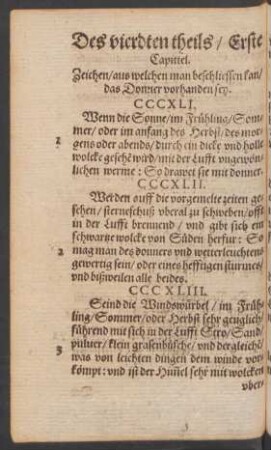 Des vierdten theils / Erste
Capittel.
Zeichen / aus welchen man beschliessen kan /
das Donner vorhanden sey.
CCCXLI.
Wenn die Sonne / im Frühling / Som-
mer / oder im anfang des Herbst / des mor-
1
gens oder abends / durch ein dicke vnd holle
wolcke gesehē wird / mit der Lufft vngewön-
lichen werme: So drawet sie mit donner.
CCCXLII.
Werden auff die vorgemelte zeiten ge-
sehen / sterneschuß vberal zu schweben / offt
in der Lufft brennend / vnd gibt sich ein
schwartze wolcke von Süden herfur: So
2
mag man des donners vnd wetterleuchtens
gewertig sein / oder eines hefftigen sturmes /
vnd bißweilen alle beides.
CCCXLIII.
Seind die Windswürbel / im Früh-
ling / Sommer / oder Herbst sehr genglich /
führend mit sich in der Lufft Stro / Sand /
puluer / klein grasenbüsche / vnd dergleichē
3
was von leichten dingen dem winde vor-
kömpt: vnd ist der Hiṁel sehr mit wolcken
vber-